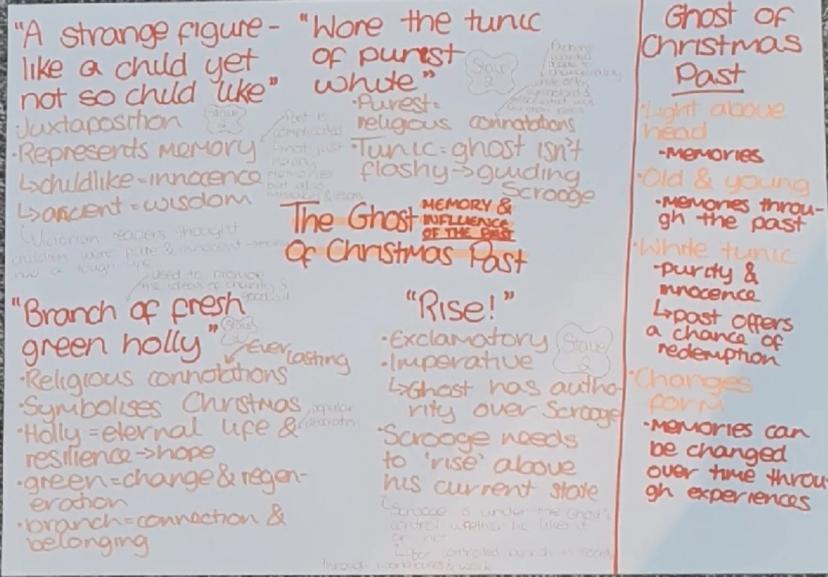 "A strange figure-
like a child yet
not so child like"
Juxtaposition
Stave
2
·Represents Memory
↳childlike=innocence
↳ancient=wisdom
Past is
complicated
not just
but also
Victorian readers thought
children were pure & innocent
"Wore the tunic
of purest
white"
Stave
2
·Purest=
religious connotations
·Tunic=ghost isn't
flashy→guiding
Scrooge
The Ghost
Of Christmas Past
MEMORY &
INFLUENCE
OF THE PAST
used to promote
the ideas of charity &
goodwill
"Branch of fresh
green holly"
Stave
Ever
lasting
·Religious connotations
·Symbolises Christmas
popular
decoration
·Holly=eternal life &
resilience→hope
·green=change & regen-
eration
·branch=connection &
belonging
"Rise!"
·Exclamatory
Stave
2
·Imperative
↳Ghost has autho-
rity over Scrooge
·Scrooge needs
to 'rise' above
his current state
Scrooge is under the Ghost's
control whether he likes it
or not
through workhouses & work
Ghost of
Christmas
Past
·Light above
head
-Memories
·Old & young
·Memories throu-
gh the past
·White tunic
-purity &
innocence
↳past offers
a chance of
redemption
·Changes
form
·Memories can
be changed
over time throu-
gh experiences